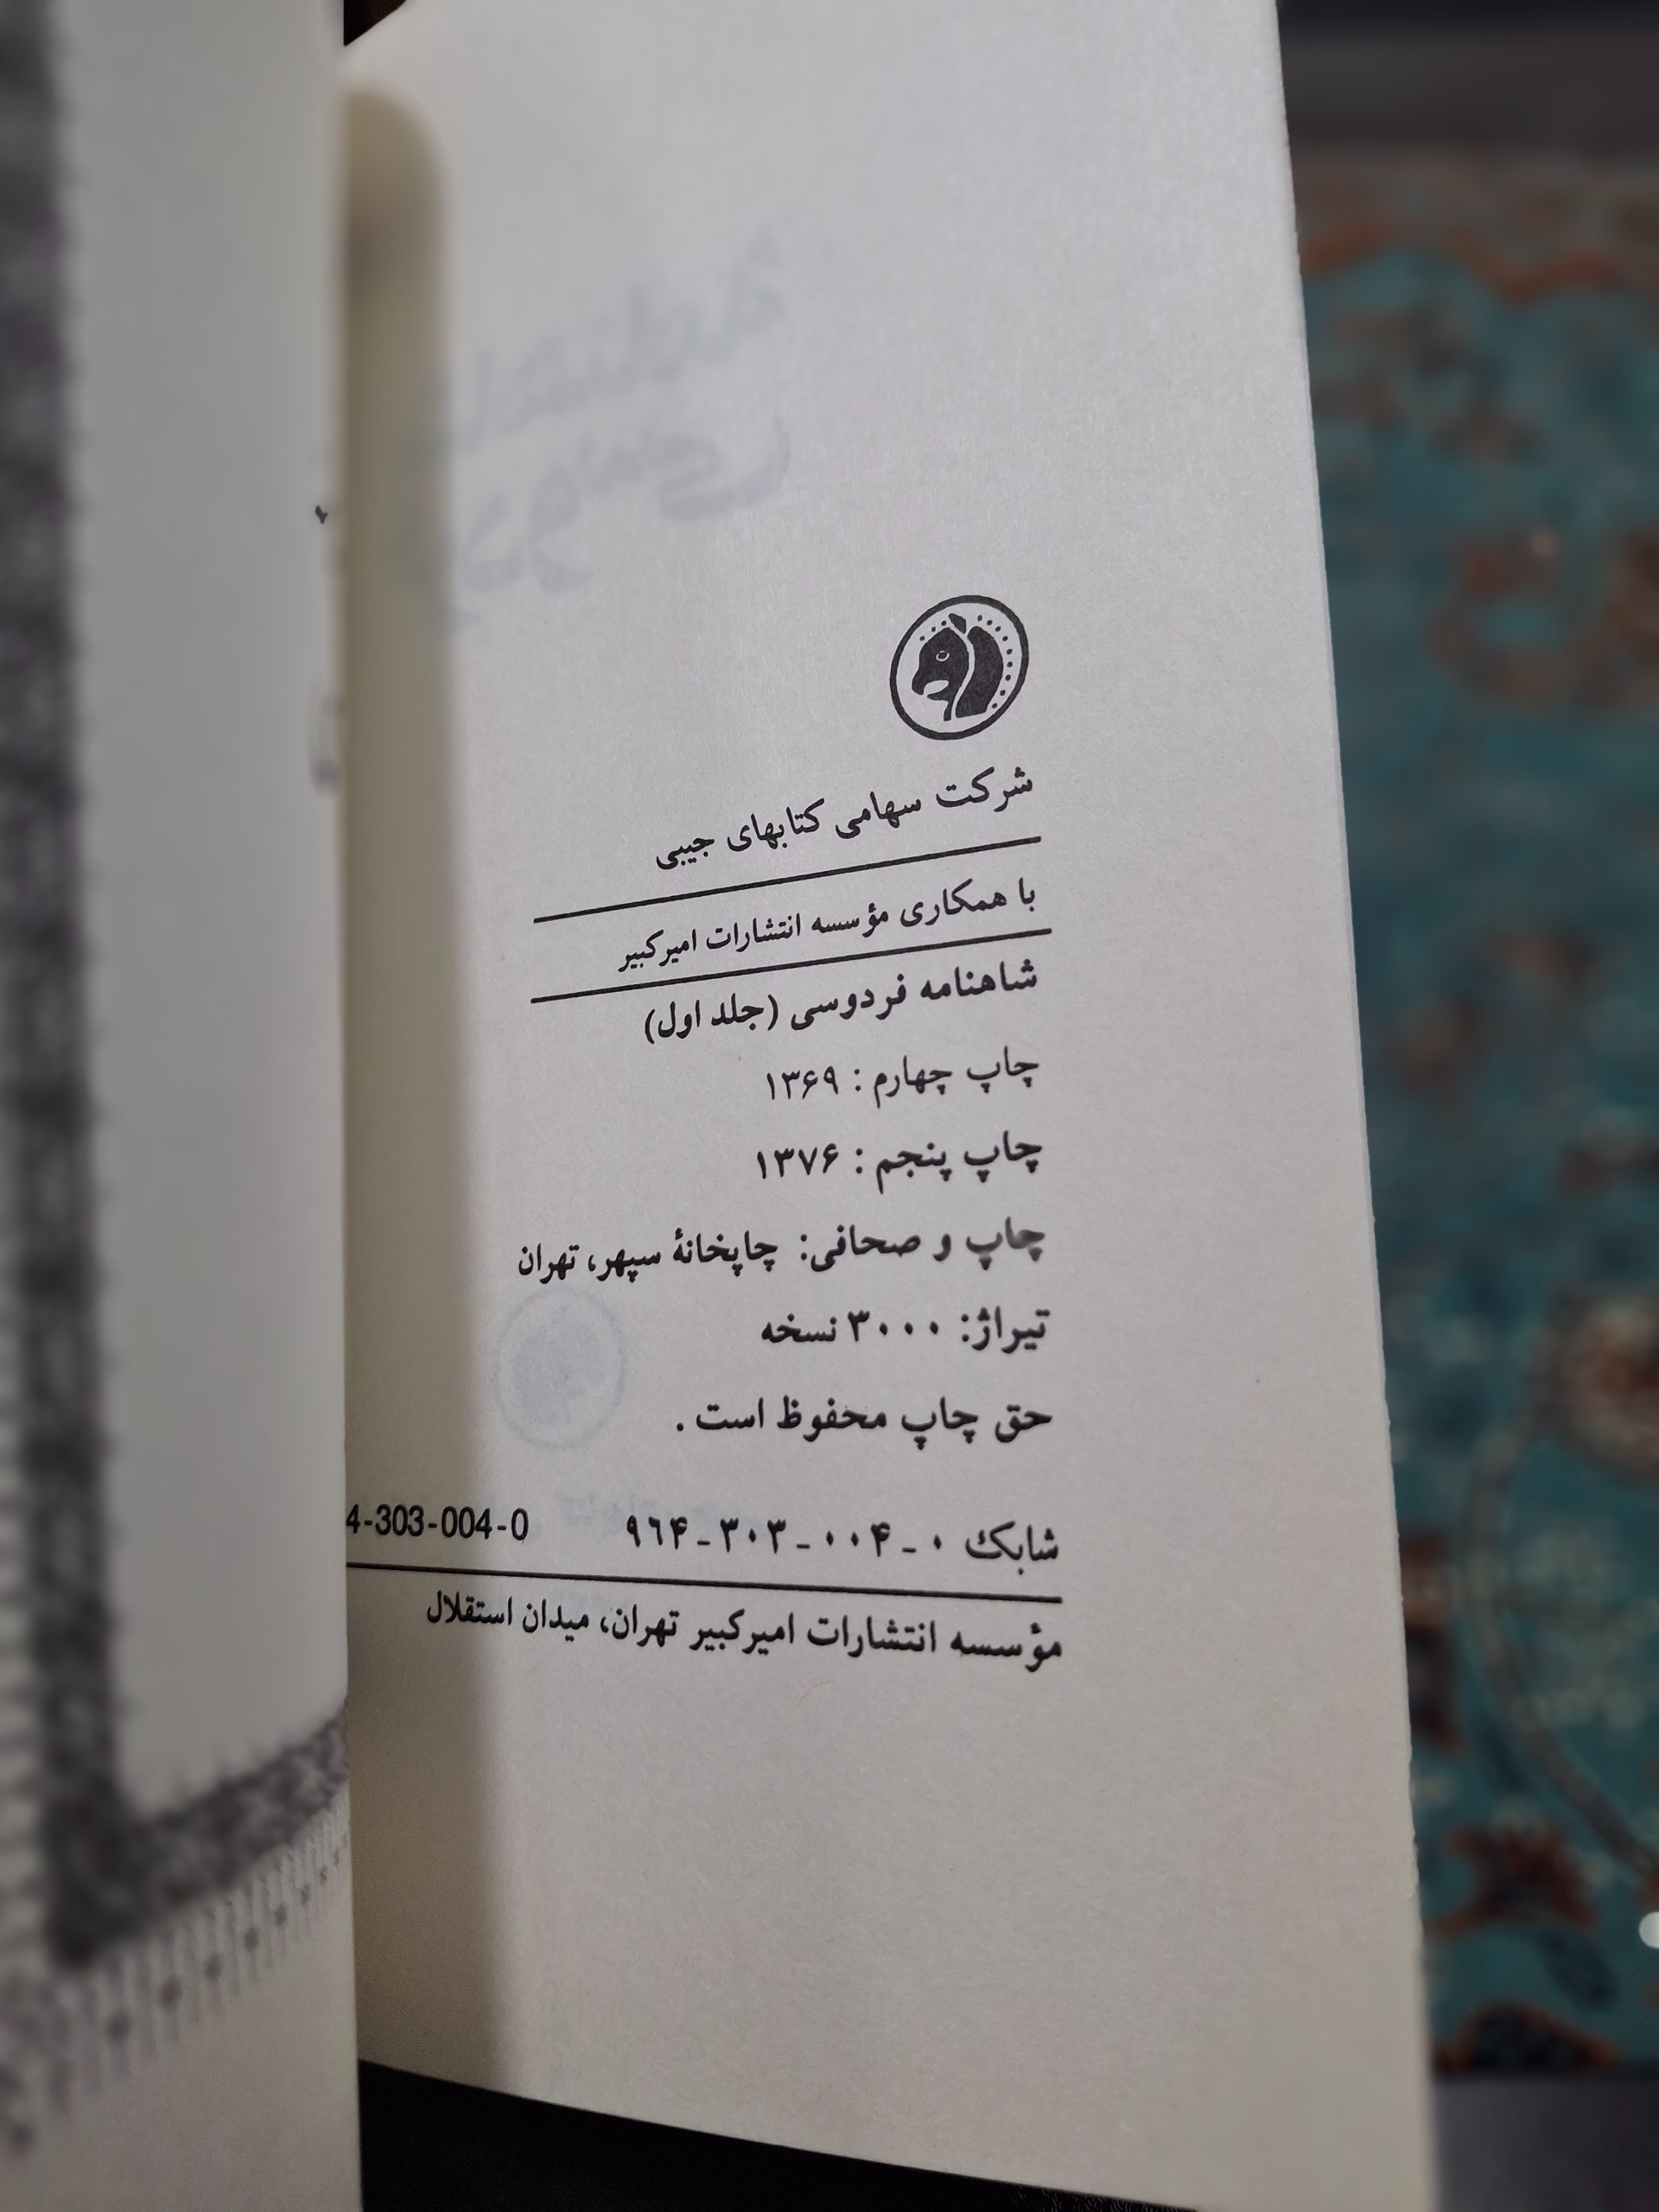 شرکت سهامی کتابهای جیبی
با همکاری مؤسسه انتشارات امیرکبیر
شاهنامه فردوسی (جلد اول)
چاپ چهارم : ۱۳۶۹
چاپ پنجم : ۱۳۷۶
چاپ و صحافی: چاپخانهٔ سپهر، تهران
تیراژ: ۳۰۰۰ نسخه
حق چاپ محفوظ است .
شابک ۰ - ۰۰۴ - ۳۰۳ - ۹٦۴ 4-303-004-0
مؤسسه انتشارات امیرکبیر تهران، میدان استقلال